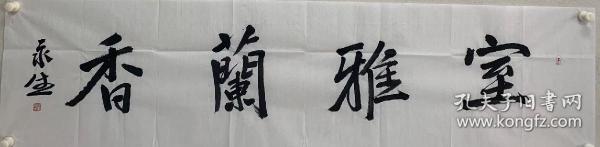 室雅蘭香
永生
孔夫子旧书网
www.kongfz.com